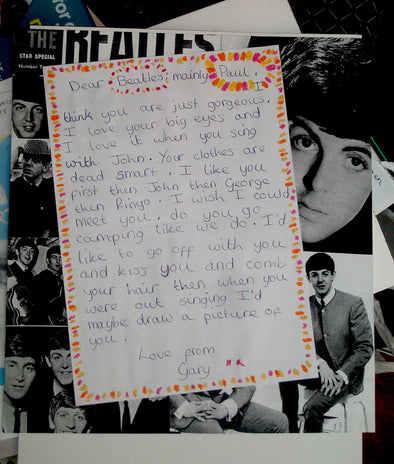 THE BEATLES
STAR SPECIAL
Dear Beatles, mainly Paul, I
think you are just gorgeous.
I love your big eyes and
I love it when you sing
with John. Your clothes are
dead smart. I like you
first then John then George
then Ringo. I wish I could
meet you, do you go
camping like we do. I'd
like to go off with you
and kiss you and comb
your hair then when you
were out singing I'd
maybe draw a picture of
you.
Love from
Gary xx